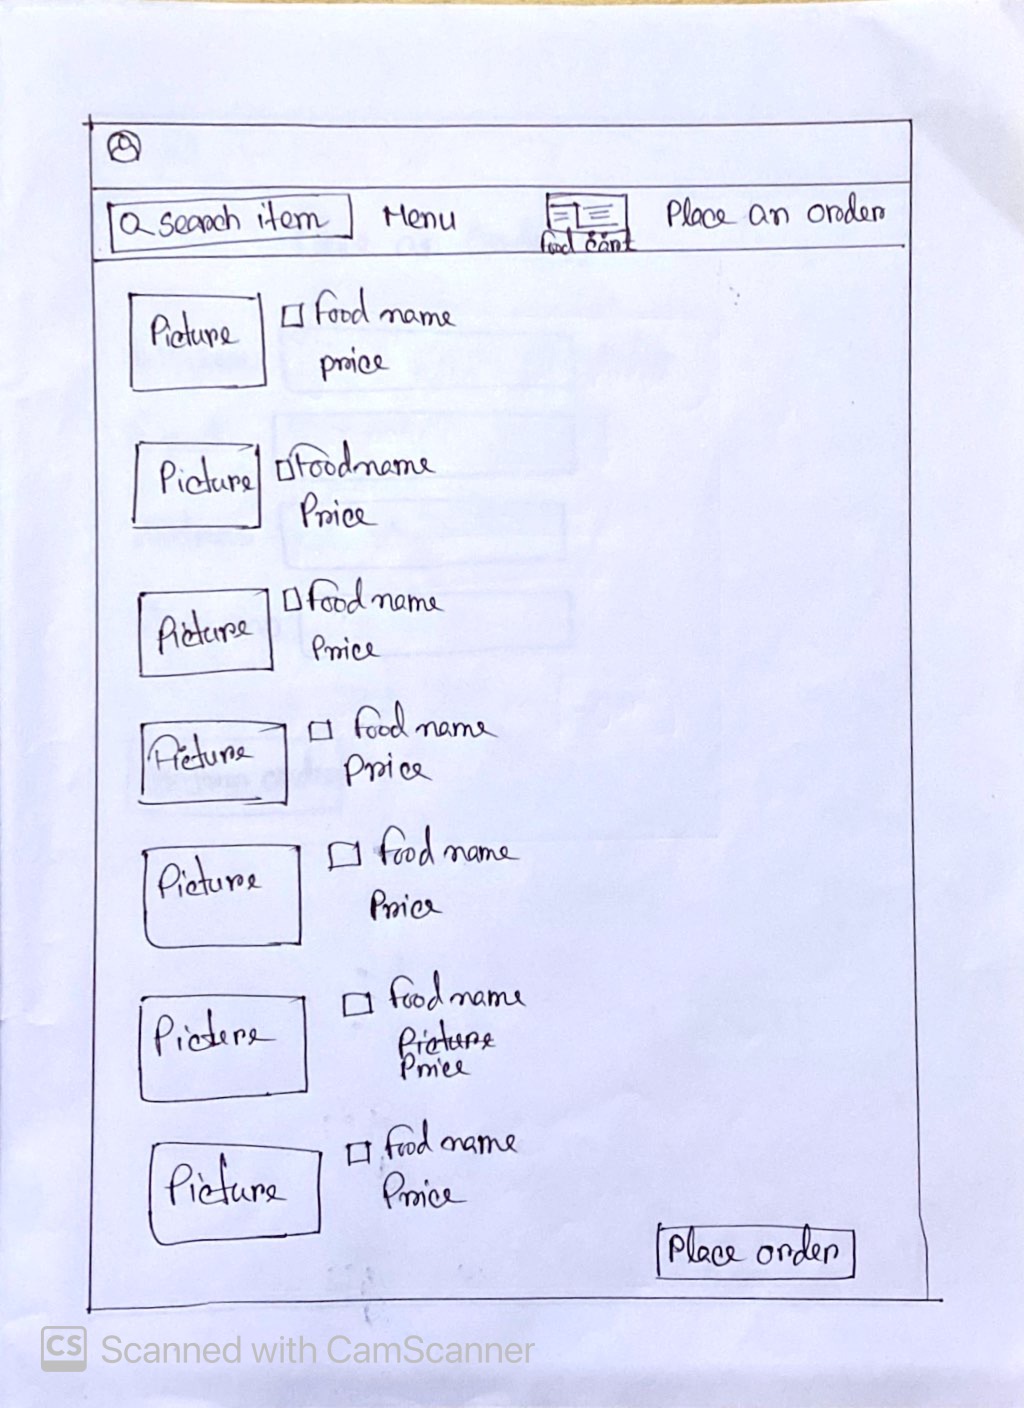 search item Menu food cart Place an order
Picture food name
price
Picture Foodname
Price
Picture food name
Price
Picture food name
Price
Picture food name
Price
Picture food name
Picture
Price
Picture food name
Price
Place order
CS Scanned with CamScanner